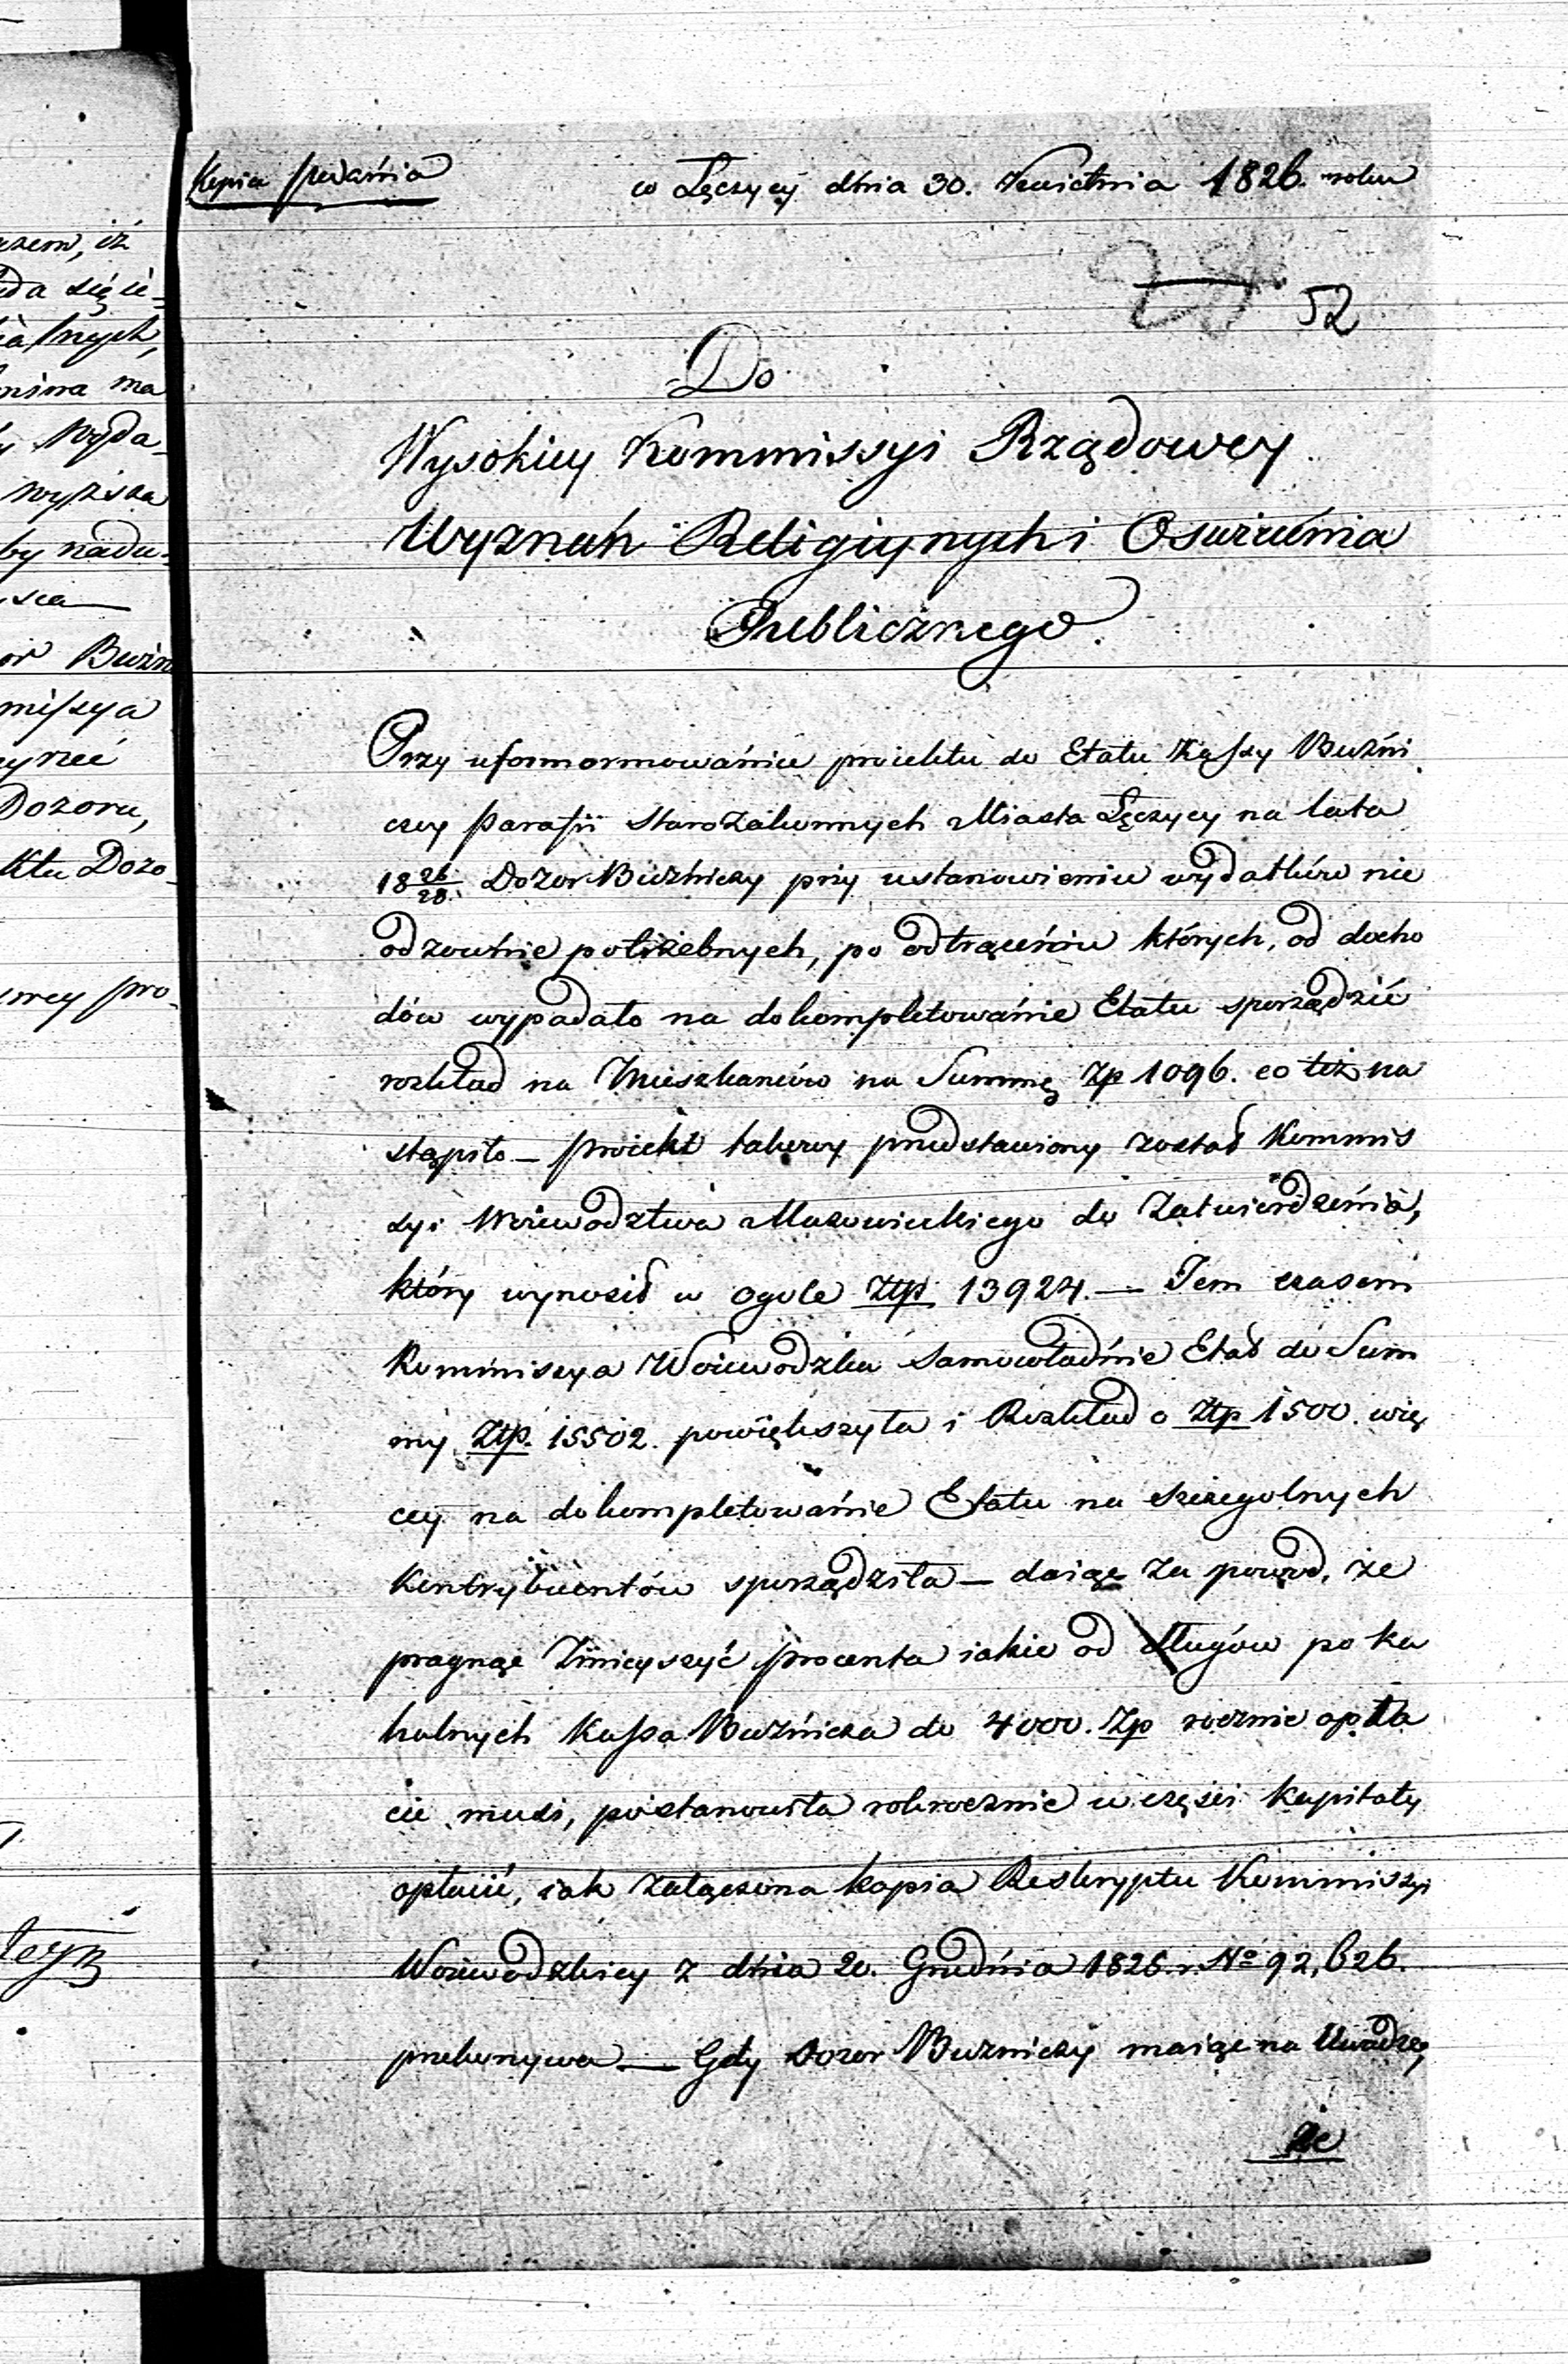 Kopia podania
w Łęczycy dnia 30. Kwietnia 1826. roku
52
Do
Wysokiey Kommissyi Rządowey
Wyznań Religiynych i Oswiecenia
Publicznego.
Przy uformormowaniu proiektu do Etatu Kassy Buźni
czey Parafii Starozakonnych Miasta Łęczycy na lata
18 26/28. Dozor Buźniczy przy ustanowieniu wydatków nie
odzownie potrzebnych, po odtrąceniu których, od docho
dów wypadało na dokompletowanie Etatu sporządzić
rozkład na Mieszkanców na Summę Zp 1096. co też na
stąpiło — proiekt takowy przedstawiony został Kommis
syi Woiewodztwa Mazowieckiego do Zatwierdzenia,
który wynosił w ogole Złp 13924. — Tem czasem
Kommissya Woiewodzka samowładnie Etat do Sum
my Złp. 15502. powiększyła i Rozkład o Złp 1500. wię
cey na dokompletowanie Etatu na szczegolnych
Kontrybuentów sporządziła — daiąc za powod, że
pragnąc Zmnieyszyć procenta iakie od długów po ka
halnych Kassa Buźnicza do 4000. Zp rocznie opła
cić musi, postanowiła rokrocznie w części kapitały
opłacić, iak załączona kopia Reskryptu Kommissyi
Woiewodzkiey z dnia 20. Grudnia 1826. r. No 92,626.
przekonywa — Gdy Dozor Buzniczy maiąc na Uwadze,
że
azem, iż
da się ie-
alnych,
ma
wyda-
by nadu-
or Buźn
missya
Dozoru,
ktu Dozo-
owey pro-